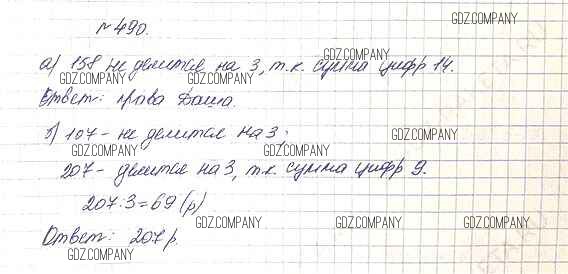 №490.
GDZ.COMPANY
а) 158 не делится на 3, т.к. сумма цифр 14.
GDZ.COMPANY
GDZ.COMPANY GDZ.COMPANY
Ответ: права Даша.
б) 107 - не делится на 3;
GDZ.COMPANY
GDZ.COMPANY GDZ.COMPANY
207 - делится на 3, т.к. сумма цифр 9.
207:3=69 (р)
GDZ.COMPANY GDZ.COMPANY GDZ.COMPANY
Ответ: 207 р.
GDZ.COMPANY